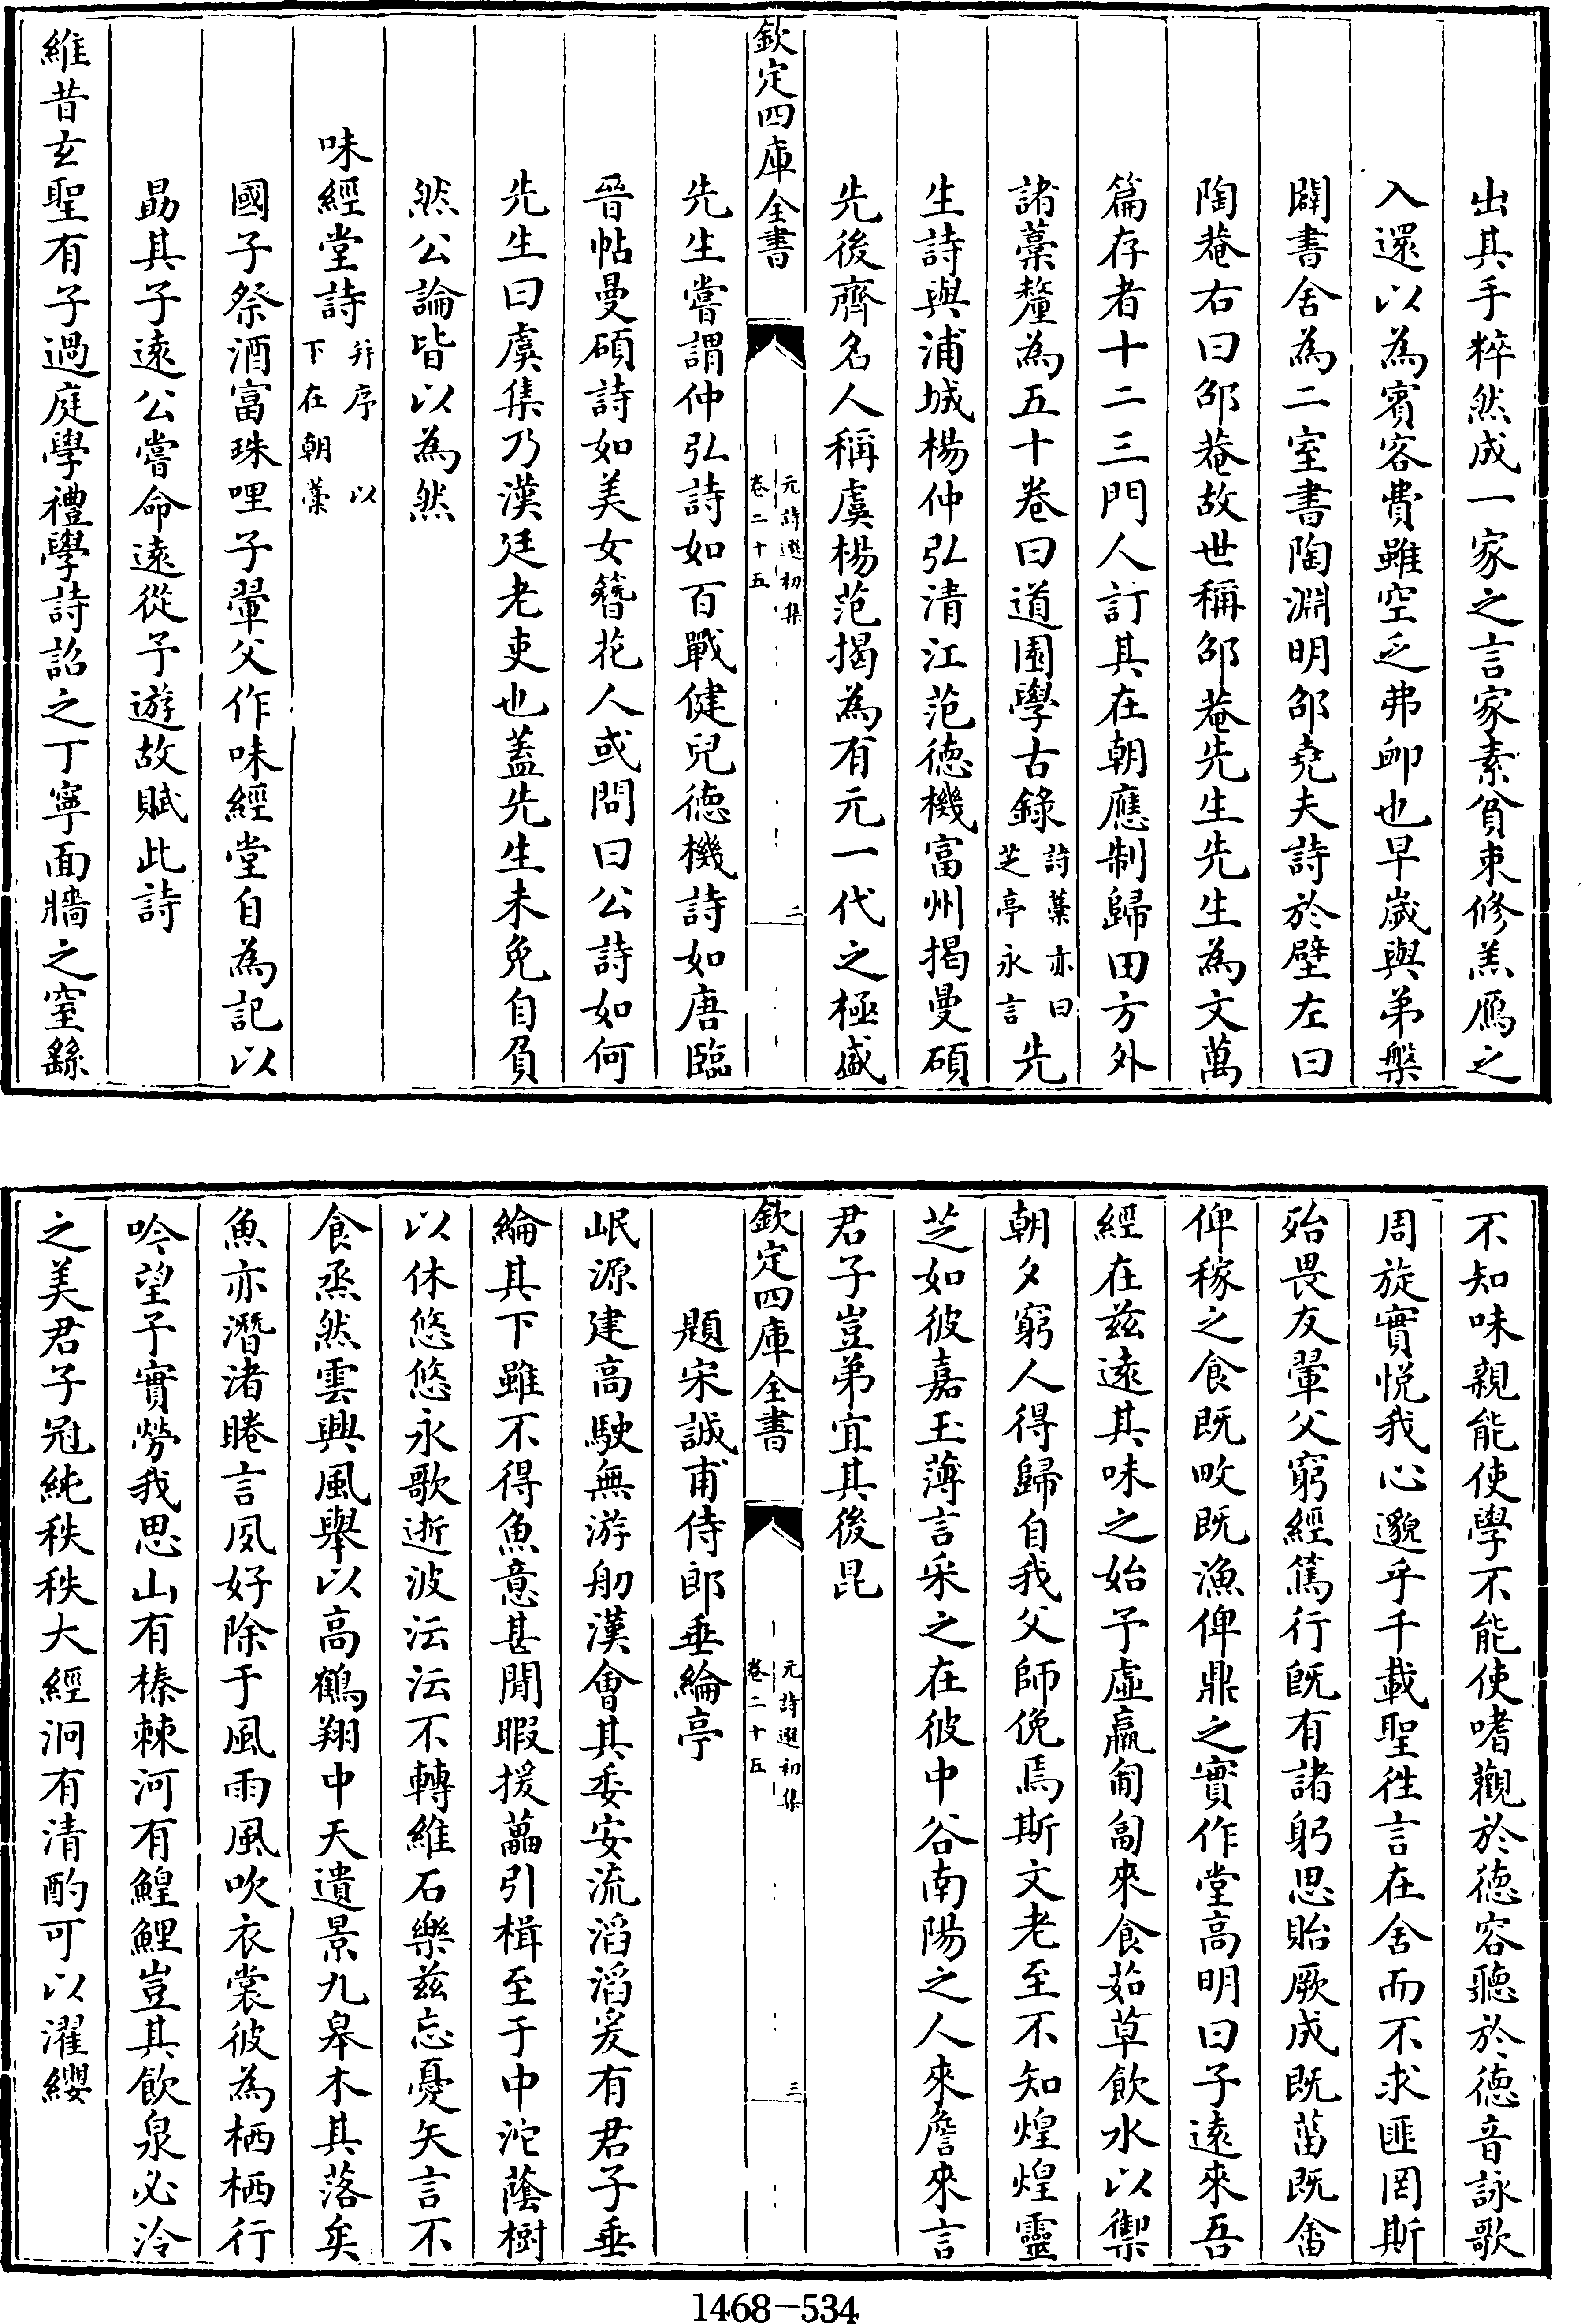 出其手粹然成一家之言家素貧束修羔鴈之
入還以為賓客費雖空乏弗卹也早嵗與弟槃
闢書舍為二室書陶淵明邵堯夫詩於壁左曰
陶菴右曰邵菴故世稱邵菴先生先生為文萬
篇存者十二三門人訂其在朝應制歸田方外
諸藁釐為五十卷曰道園學古錄詩藁亦曰芝亭永言先
生詩與浦城楊仲弘清江范德機富州揭曼碩
先後齊名人稱虞楊范揭為有元一代之極盛
欽定四庫全書
元詩選初集
卷二十五
二
先生嘗謂仲弘詩如百戰健兒德機詩如唐臨
晉帖曼碩詩如美女簪花人或問曰公詩如何
先生曰虞集乃漢廷老吏也蓋先生未免自負
然公論皆以為然
味經堂詩并序 以下在朝藁
國子祭酒富珠哩子翬父作味經堂自為記以
勗其子遠公嘗命遠從予遊故賦此詩
維昔玄聖有子過庭學禮學詩詔之丁寧面牆之窒繇
不知味親能使學不能使嗜觀於德容聽於德音詠歌
周旋實悅我心邈乎千載聖徃言在舍而不求匪罔斯
殆畏友翬父窮經篤行既有諸躬思貽厥成既菑既畬
俾稼之食既畋既漁俾鼎之實作堂高明曰子遠來吾
經在兹遠其味之始予虛羸匍匐來食茹草飲水以禦
朝夕窮人得歸自我父師俛焉斯文老至不知煌煌靈
芝如彼嘉玉薄言采之在彼中谷南陽之人來詹來言
君子豈弟宜其後昆
欽定四庫全書
元詩選初集
卷二十五
三
題宋誠甫侍郎垂綸亭
岷源建高駛無游舠漢會其委安流滔滔爰有君子垂
綸其下雖不得魚意甚閒暇援藟引楫至于中沱蔭樹
以休悠悠永歌逝波沄沄不轉維石樂兹忘憂矢言不
食烝然雲興風舉以高鶴翔中天遺景九皋木其落矣
魚亦潛渚睠言夙好除于風雨風吹衣裳彼為栖栖行
吟望予實勞我思山有榛棘河有鰉鯉豈其飲泉必泠
之美君子冠純秩秩大經泂有清酌可以濯纓
1468-534